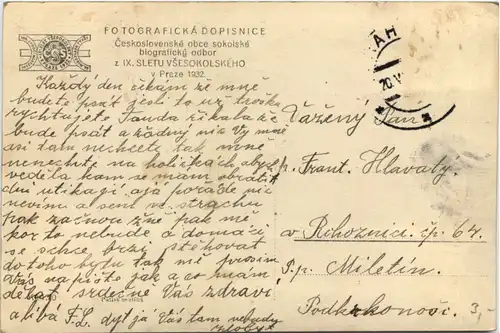 FOTOGRAFICKÁ DOPISNICE
Československé obce sokolské
biografický odbor
z IX. SLETU VŠESOKOLSKÉHO
v Praze 1932.
Každý den čekám že mně
budete psát jesli to už trochu
rychtujete Fanda říkala že
bude psát a žádný nic Vy mně
ani tam nechcete tak mně
nenechte na holičkách abych
veděla kam se mám obrátit
dni utíkají a já pořáde nic
nevím a sem ve strachu
pak začnou žně pak mě
por to nebude a domácí
se schce brzi stěhovat
do toho bytu tak mě prosím
Vás napište jak a co mám
dělat srdečně Vás zdraví
a líbá F.L. dyť já Vás tam nebudu
Vážený Pan
Frant. Hlavatý
v Rohoznici čp 64.
P.p. Miletín
Podkrkonoší
20.V
3,-